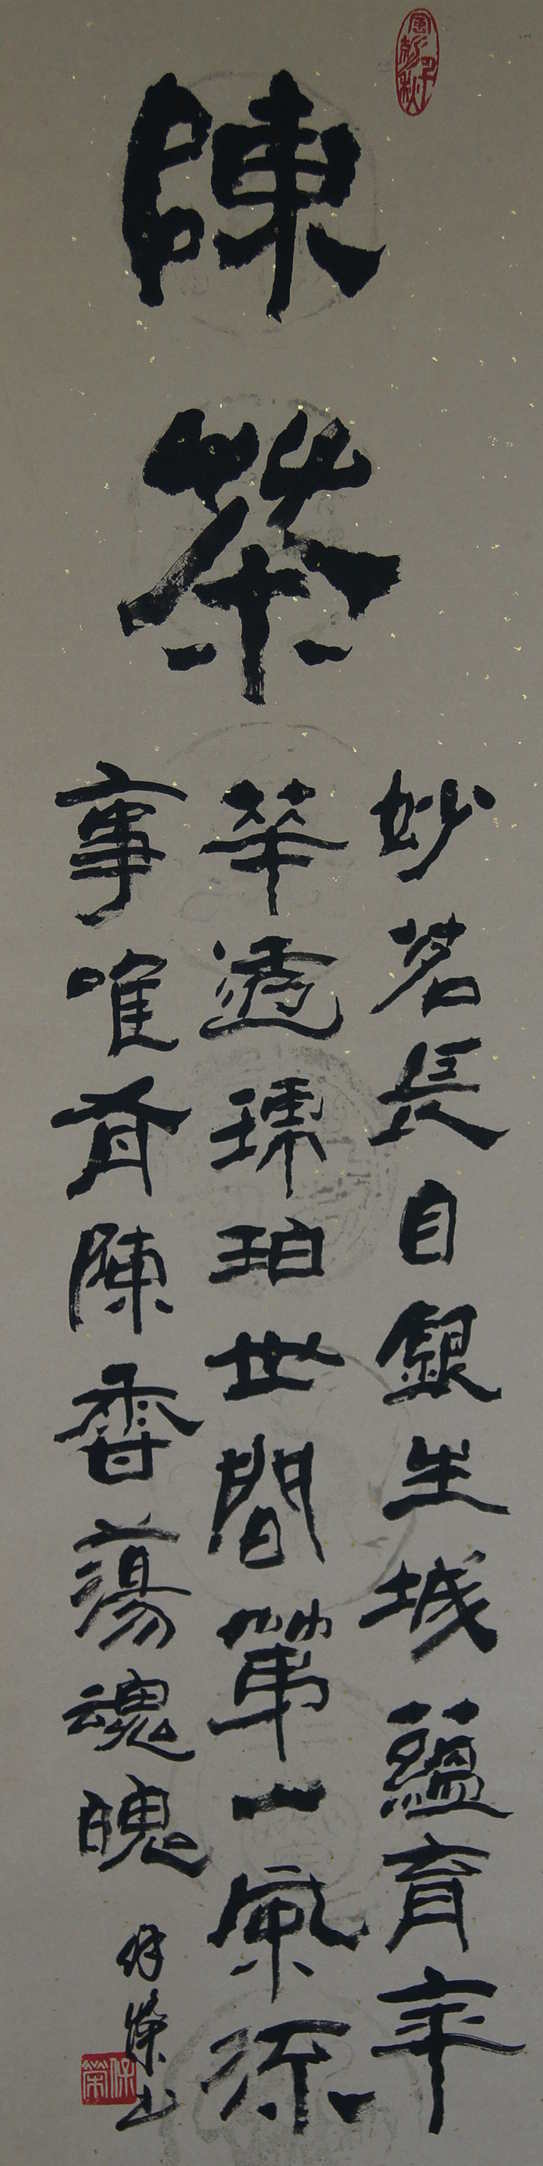 陳茶
妙茗長自銀生城蘊育年
華透琥珀世間第一風流
事唯有陳香蕩魂魄
保榮書
保榮